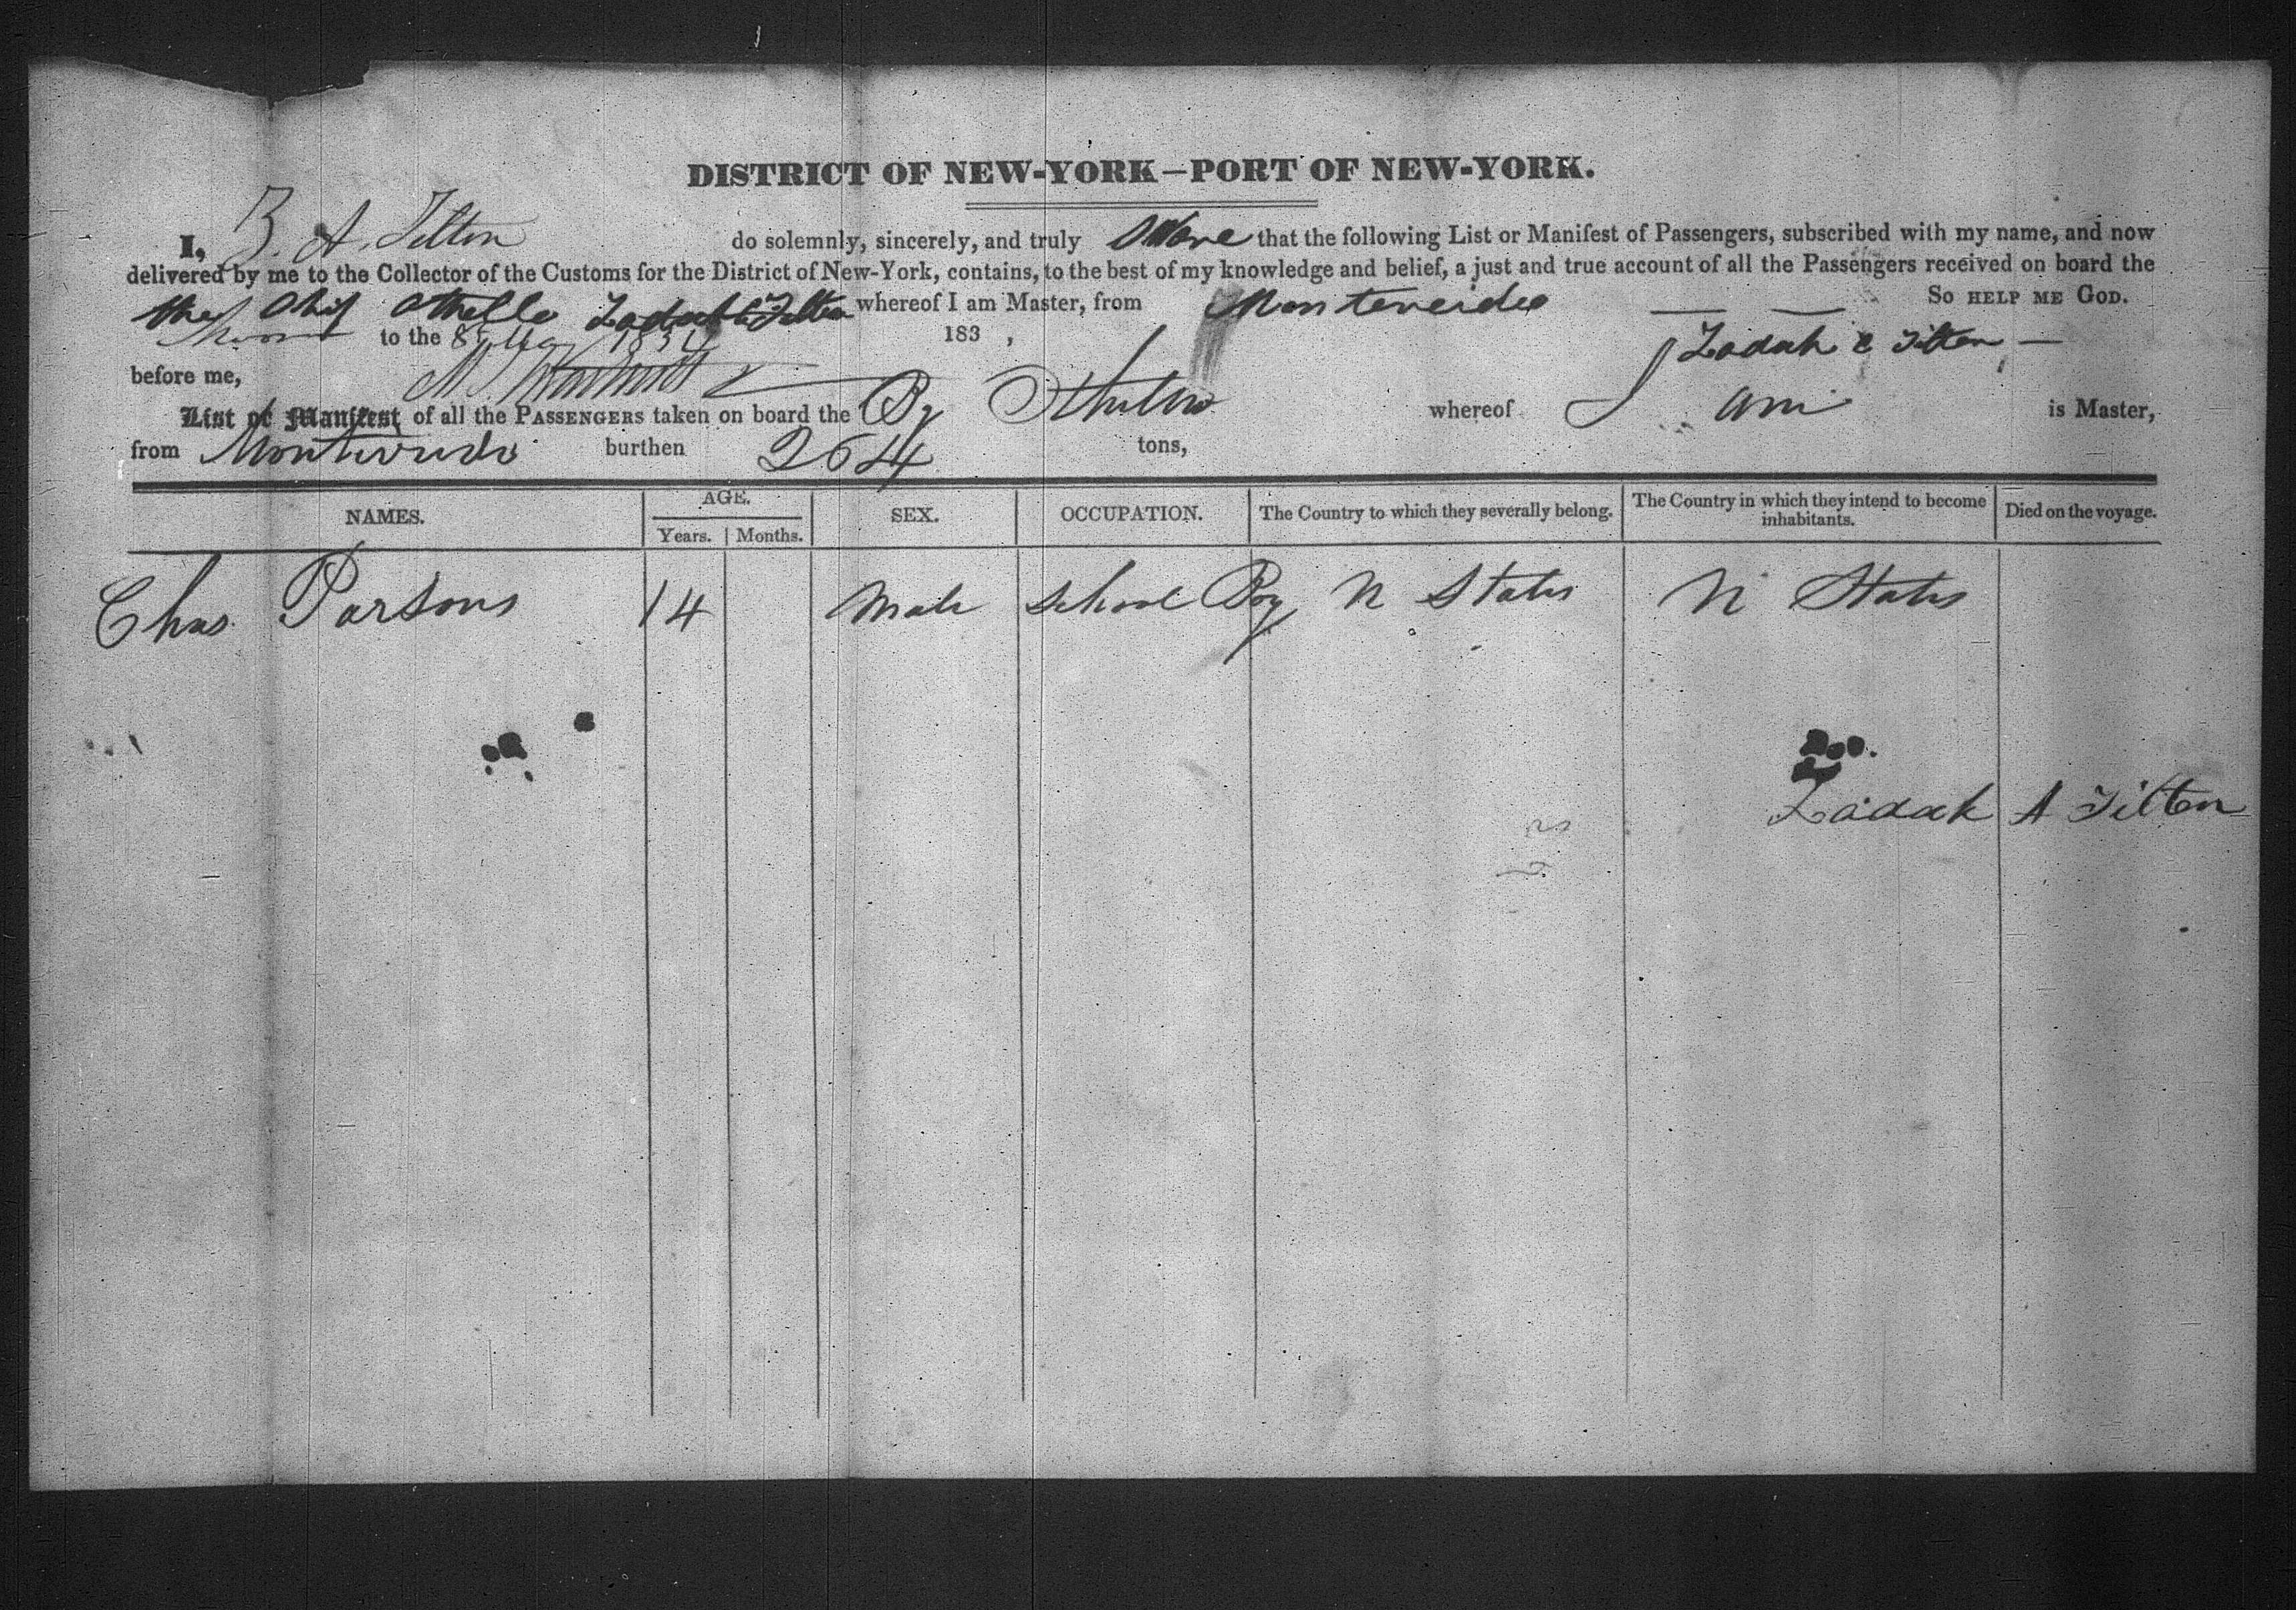 DISTRICT OF NEW-YORK—PORT OF NEW-YORK.
I, Z. A. Tilton do solemnly, sincerely, and truly that the following List or Manifest of Passengers, subscribed with my name, and now
delivered by me to the Collector of the Customs for the District of New-York, contains, to the best of my knowledge and belief, a just and true account of all the Passengers received on board the
the Othello Zadock Tilton whereof I am Master, from Monteveideo So HELP ME GOD.
to the 183 , Zadock Tilton
before me,
List or Manifest of all the PASSENGERS taken on board the Bg Othello whereof is Master,
from Montevideo burthen 264 tons,
NAMES. AGE. Years. Months. SEX. OCCUPATION. The Country to which they severally belong. The Country in which they intend to become inhabitants. Died on the voyage.
Chas Parsons 14 Male School Boy U States U States
Zadock A Tilton